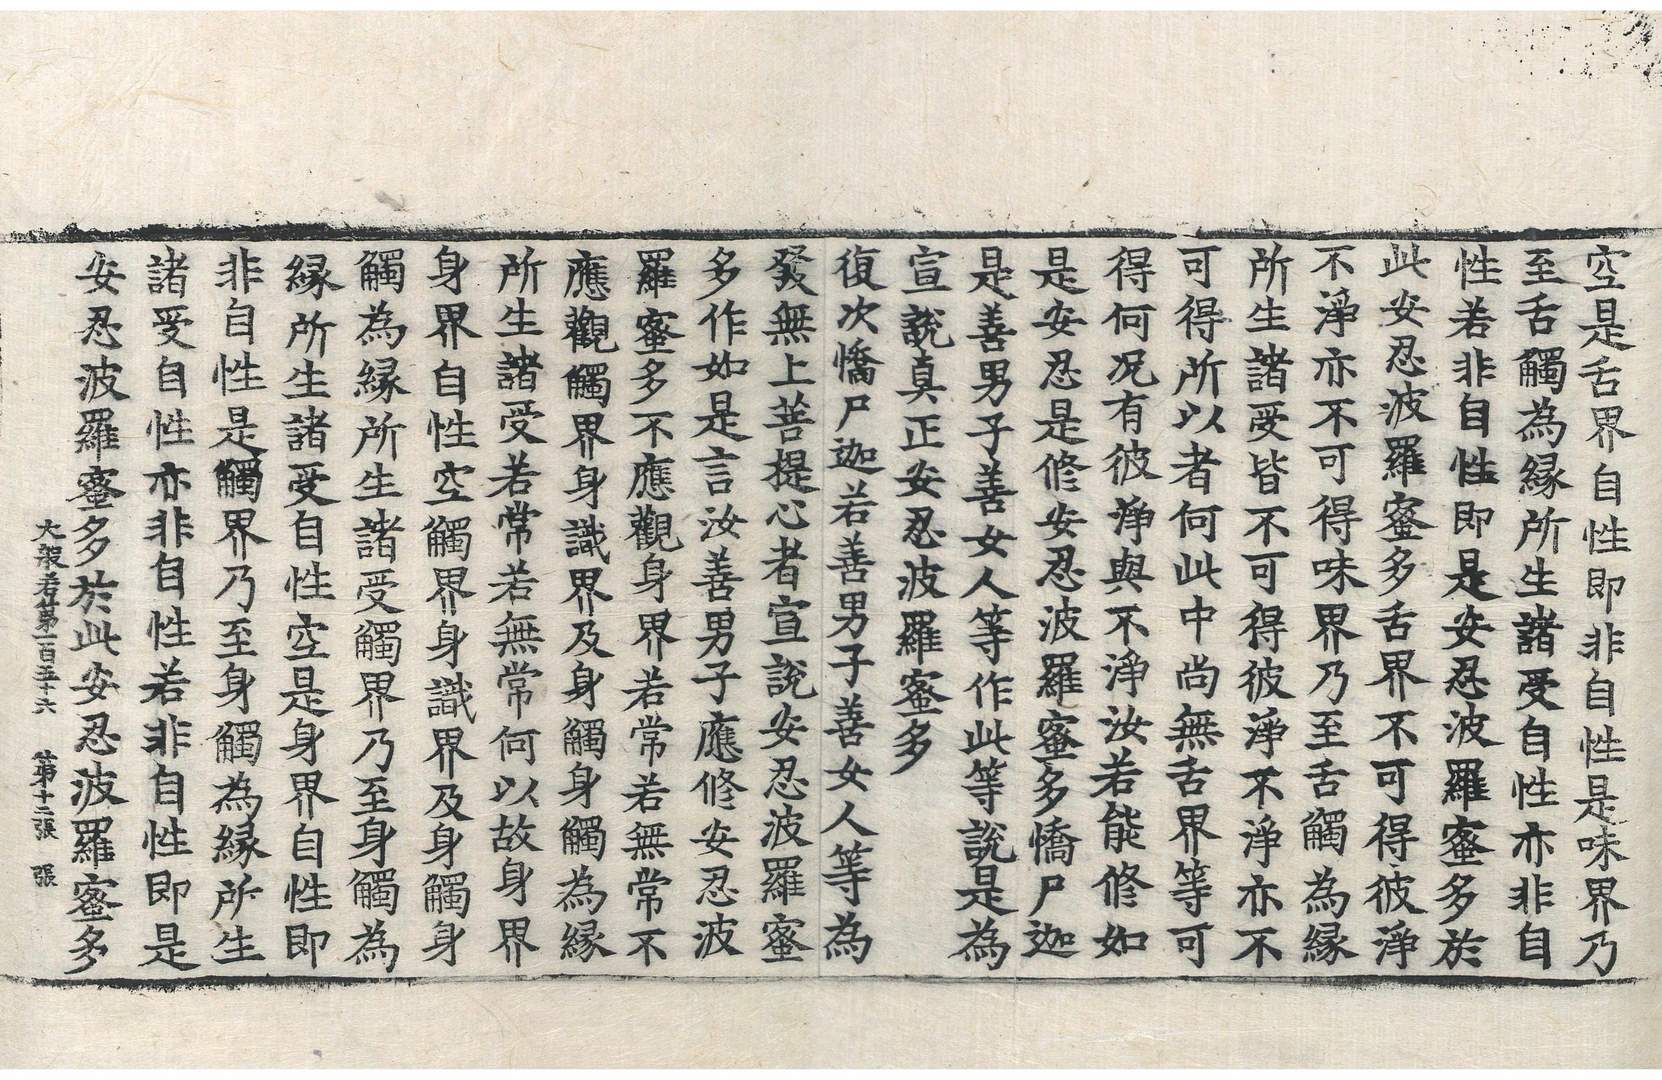 空是舌界自性即非自性是味界乃
至舌觸為縁所生諸受自性亦非自
性若非自性即是安忍波羅蜜多於
此安忍波羅蜜多舌界不可得彼淨
不淨亦不可得味界乃至舌觸為縁
所生諸受皆不可得彼淨不淨亦不
可得所以者何此中尚無舌界等可
得何况有彼淨與不淨汝若能修如
是安忍是修安忍波羅蜜多憍尸迦
是善男子善女人等作此等說是為
宣說真正安忍波羅蜜多
復次憍尸迦若善男子善女人等為
發無上菩提心者宣說安忍波羅蜜
多作如是言汝善男子應修安忍波
羅蜜多不應觀身界若常若無常不
應觀觸界身識界及身觸身觸為縁
所生諸受若常若無常何以故身界
身界自性空觸界身識界及身觸身
觸為縁所生諸受觸界乃至身觸為
縁所生諸受自性空是身界自性即
非自性是觸界乃至身觸為縁所生
諸受自性亦非自性若非自性即是
安忍波羅蜜多於此安忍波羅蜜多
大般若第一百五十六 第十二張 張